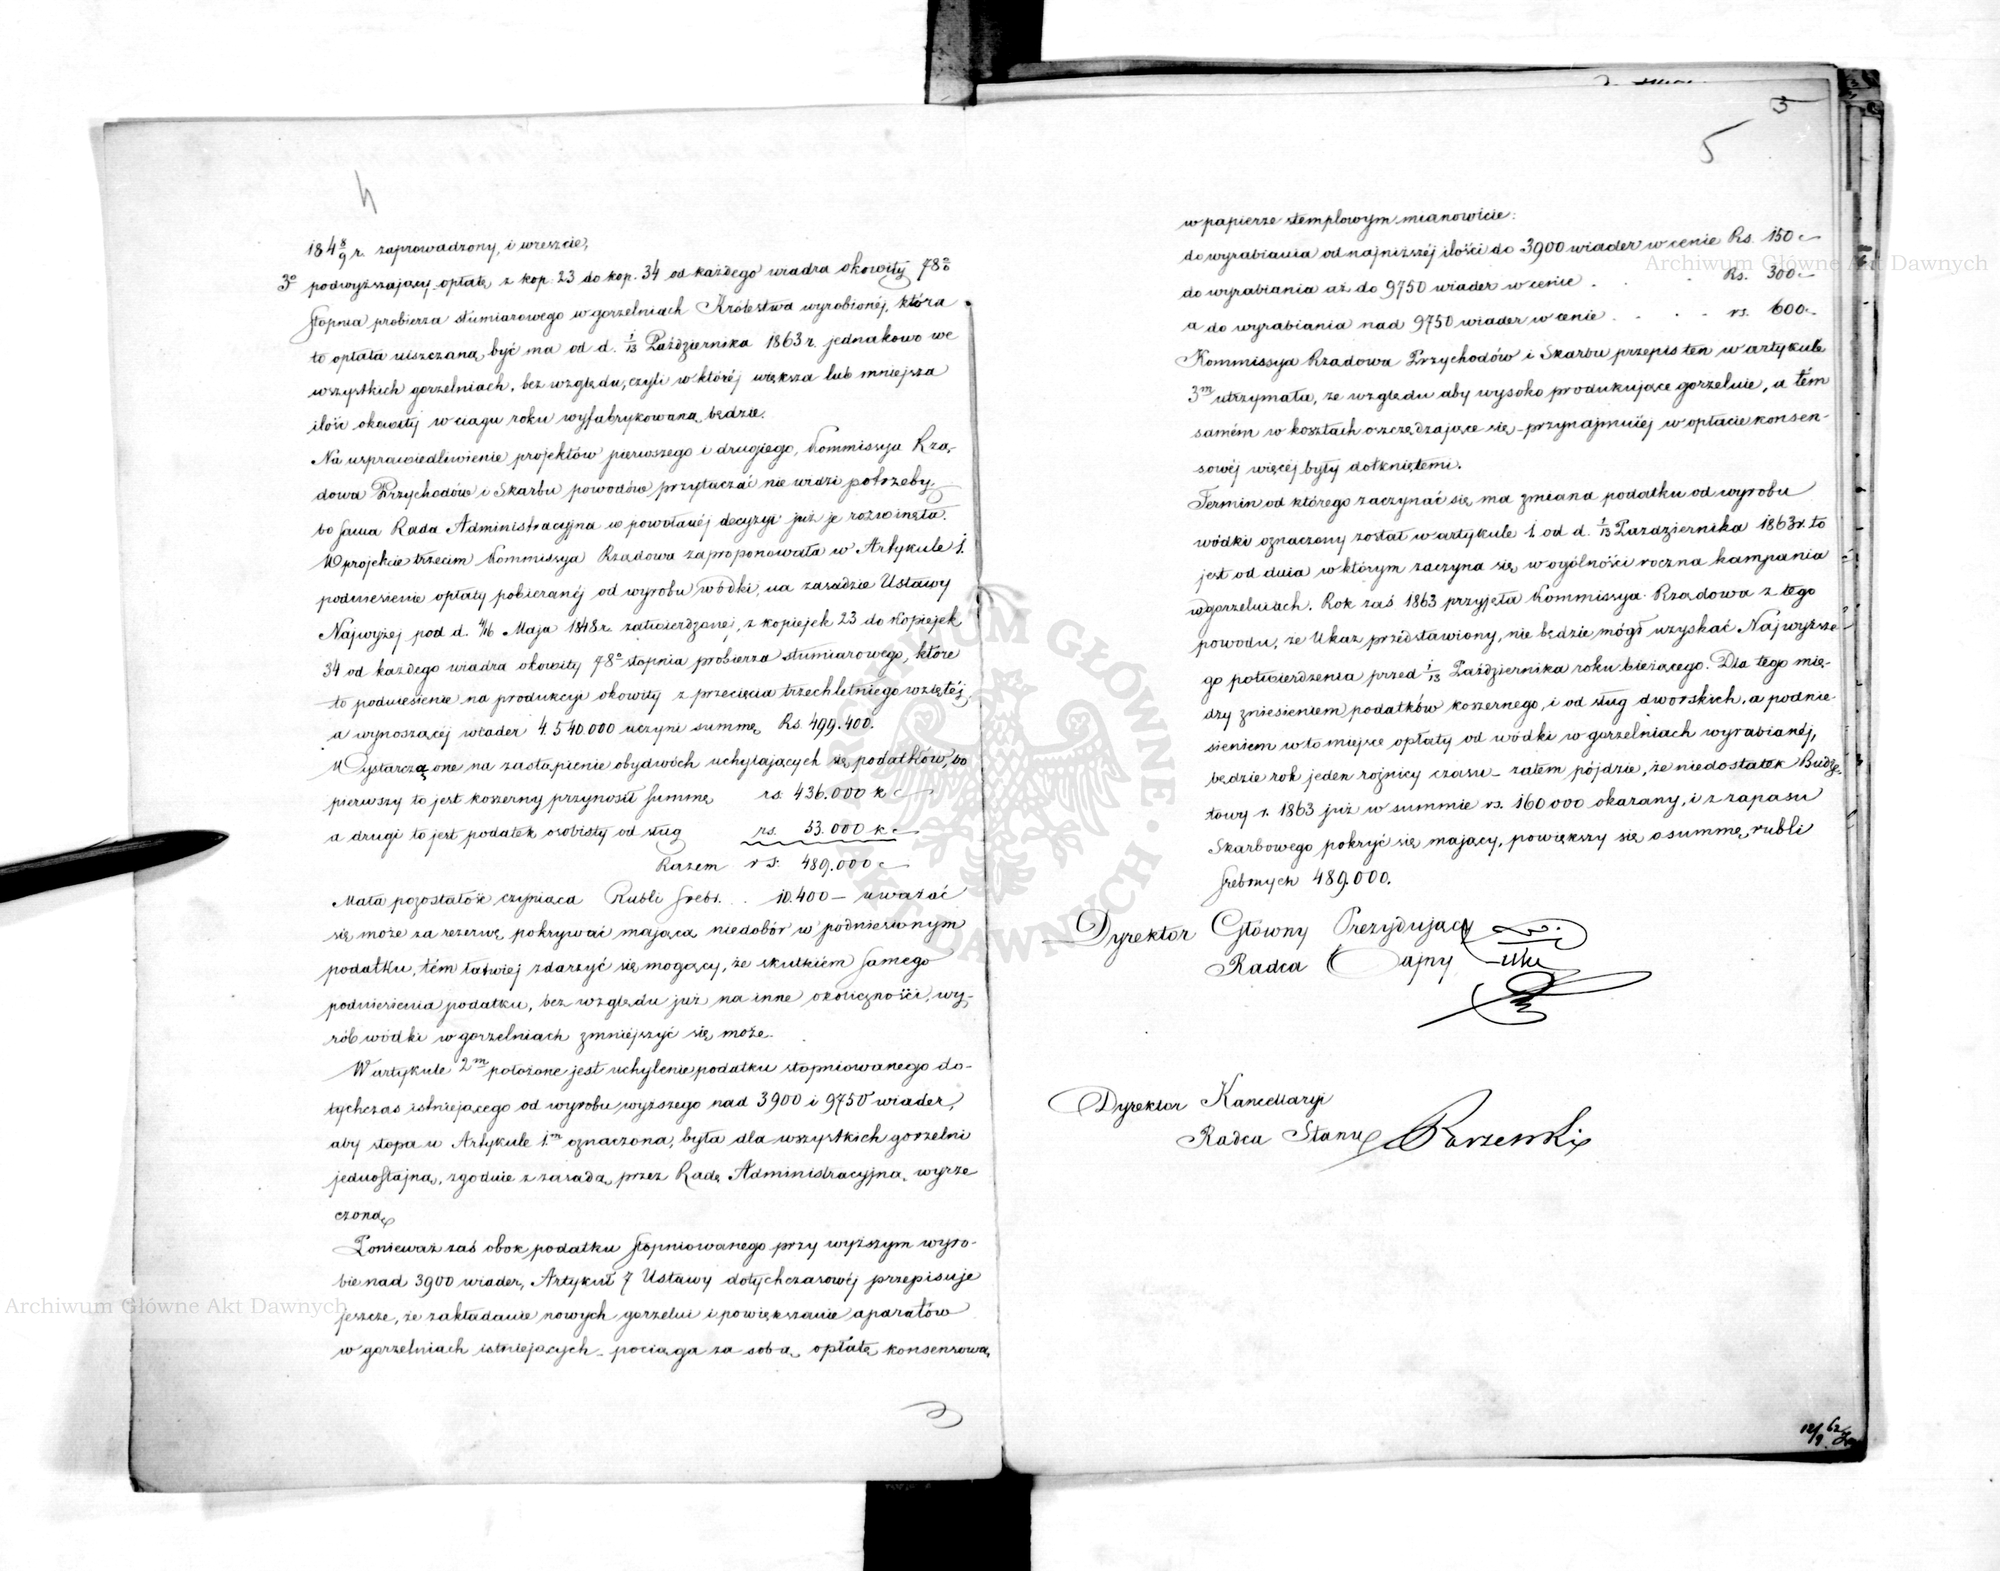 4
184 8/9 r. zaprowadzony, i wreszcie,
3º podwyższający opłatę z kop. 23 do kop. 34 od każdego wiadra okowity 78º
stopnia probierza stumiarowego w gorzelniach Królestwa wyrobionéj, która
to opłata uiszczaną być ma od d. 1/13 Października 1863 r. jednakowo we
wszystkich gorzelniach, bez względu, czyli w któréj większa lub mniejsza
ilość okowity w ciągu roku wyfabrykowaną będzie.
Na usprawiedliwienie projektów pierwszego i drugiego, Kommissya Rzą-
dowa Przychodów i Skarbu powodów przytaczać nie widzi potrzeby
bo sama Rada Administracyjna w powołanéj decyzyi już je rozwinęła.
W projekcie trzecim Kommissya Rządowa zaproponowała w Artykule 1.
podniesienie opłaty pobieranéj od wyrobu wódki, na zasadzie Ustawy
Najwyżej pod d. 4/16 Maja 1848 r. zatwierdzonej, z kopiejek 23 do kopiejek
34 od każdego wiadra okowity 78º stopnia probierza stumiarowego, które
to podniesienie na produkcyi okowity z przecięcia trzechletniego wziętéj
a wynoszącéj wiader 4.540.000 uczyni summę Rs. 499.400.
Wystarczą one na zastąpienie obydwóch uchylających się podatków, bo
pierwszy to jest koszerny przynosił summę rs. 436.000 k –
a drugi to jest podatek osobisty od sług rs. 53.000 k –
Razem rs. 489.000 –
Mała pozostałość czyniąca Rubli srebr. . 10.400 – uważać
się może za rezerwę pokrywać mającą niedobór w podniesionym
podatku, tém łatwiej zdarzyć się mogący, że skutkiem samego
podniesienia podatku, bez względu już na inne okoliczności, wy-
rób wódki w gorzelniach zmniejszyć się może.
W artykule 2m położone jest uchylenie podatku stopniowanego do-
tychczas istniejącego od wyrobu wyższego nad 3900 i 9750 wiader,
aby stopa w Artykule 1.m oznaczona, była dla wszystkich gorzelni
jednostajną, zgodnie z zasadą przez Radę Administracyjną wyrze
czoną
Ponieważ zaś obok podatku stopniowanego przy wyższym wyro-
bie nad 3900 wiader, Artykuł 7 Ustawy dotychczasowéj przepisuje
jeszcze, że zakładanie nowych gorzelni i powiększanie aparatów
w gorzelniach istniejących – pociąga za sobą opłatę konsensową
3
5
w papierze stemplowym mianowicie:
do wyrabiania od najniższéj ilości do 3900 wiader w cenie Rs. 150 –
do wyrabiania aż do 9750 wiader w cenie . . Rs. 300 –
a do wyrabiania nad 9750 wiader w cenie . . . . rs. 600 –
Kommissya Rządowa Przychodów i Skarbu przepis ten w artykule
3m utrzymała, ze względu aby wysoko produkujące gorzelnie, a tém
samém w kosztach oszczędzające się – przynajmniéj w opłacie konsen-
sowéj więcéj były dotkniętemi.
Termin od którego zaczynać się ma zmiana podatku od wyrobu
wódki oznaczony został w artykule 1 od d. 1/13 Października 1863 r. to
jest od dnia w którym zaczyna się w ogólności roczna kampania
w gorzelniach. Rok zaś 1863 przyjęła Kommissya Rządowa z tego
powodu, że Ukaz przedstawiony, nie będzie mógł uzyskać Najwyższe
go potwierdzenia przed 1/13 Października roku bieżącego. Dla tego mię-
dzy zniesieniem podatków koszernego, i od sług dworskich, a podnie-
sieniem w to miejsce opłaty od wódki w gorzelniach wyrabianéj,
będzie rok jeden różnicy czasu – zatem pójdzie, że niedostatek Budże-
towy r. 1863 już w summie rs. 160 000 okazany, i z zapasu
Skarbowego pokryć się mający, powiększy się o summę rubli
srebrnych 489.000.
Dyrektor Główny Prezydujący
Radca Tajny
Dyrektor Kancellaryi
Radca Stanu
Archiwum Główne Akt Dawnych
Archiwum Główne Akt Dawnych
ARCHIWUM GŁÓWNE · AKT DAWNYCH ·